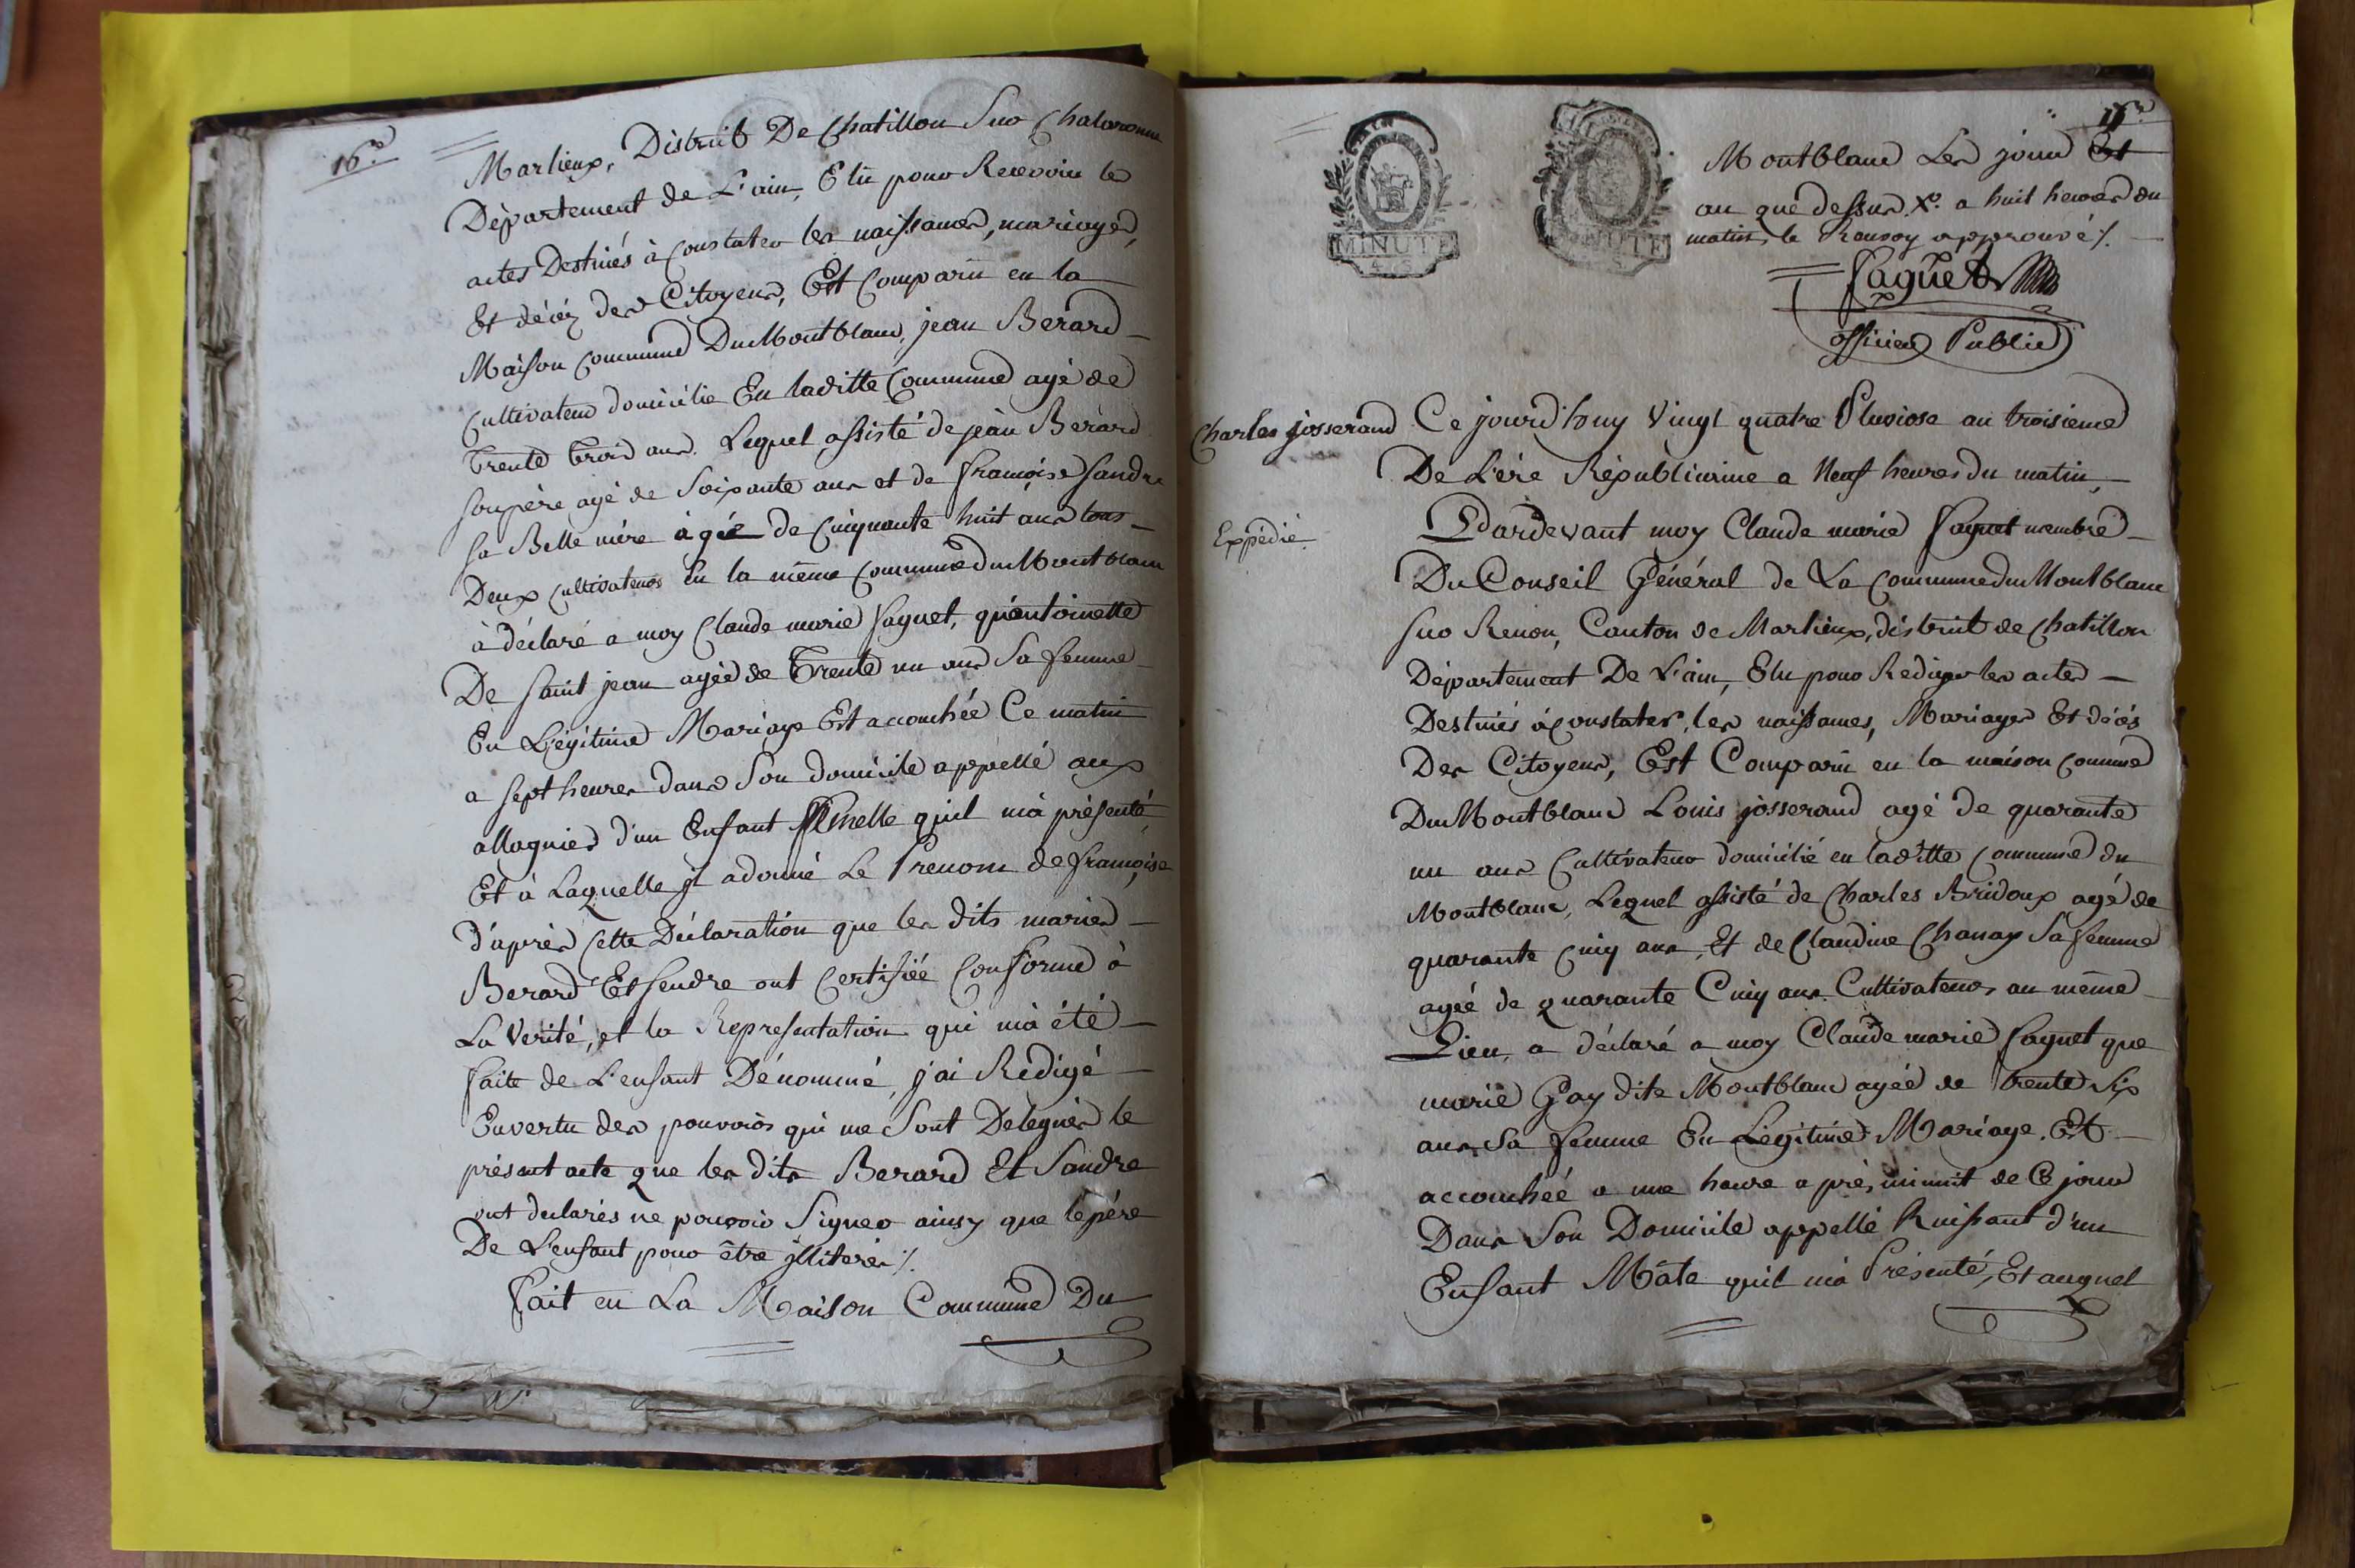 16e
Marlieux, District De Chatillon Sur Chalaronne
Département de L'ain, Elû pour Recevoir les
actes Destinés à Constater les naissances, mariages,
Et décéz des Citoyens, Est Comparu en la
Maison Commune Du Montblanc, jean Berard
Cultivateur domicilié En laditte Commune agé de
Trente trois ans. Lequel assisté de jean Berard
son père agé de Soixante ans et de françoise Sandre
sa Belle mère àgée de Cinquante huit ans tous
Deux Cultivateurs En la même Commune du Montblanc
à déclaré a moy Claude marie faguet, qu'antoinette
De Saint jean agée de Trente un ans Sa femme
En Légitime Mariage Est accouchée Ce matin
a Sept heures dans Son domicile appellé aux
allagniers d'un Enfant femelle qu'il m'a présenté
Et à Laquelle jl a donné Le Prenom de françoise
d'après Cette Déclaration que les dits mariés
Berard Et Sendre ont Certifiée Conforme à
La Verité, et la Representation qui m'a été
faite de L'enfant Dénommé, j'ai Rédigé
En vertu des pouvoirs qui me Sont Delegués le
présent acte que les dits Berard Et Sandre
ont declarés ne pouvoir Signer ainsy que le père
De L'enfant pour être jlliterés ./.
fait en La Maison Commune Du
MINUTE
4. S.
MINUTE
Montblanc Les jour Et
an que dessus X. a huit heures du
matin, le Renvoy approuvé ./.
faguet
officier Public
Charles josserand
Ce jourd'huy Vingt quatre Pluviose an troisieme
De L'ère Républicaine a Neuf heures du matin,
Expédié.
Pardevant moy Claude marie faguet membre
Du Conseil Général de La Commune du Montblanc
sur Renon, Canton de Marlieux, district de Chatillon
Département De L'ain, Elu pour Rediger les actes
Destinés à Constater, les naissances, Mariages Et décés
Des Citoyens, Est Comparu en la maison Commune
Du Montblanc Louis josserand agé de quarante
un ans Cultivateur domicilié en laditte Commune du
Montblanc, Lequel assisté de Charles Bridoux agé de
quarante Cinq ans, Et de Claudine Chanay Sa femme
agée de quarante Cinq ans. Cultivateurs au même
Lieu, a déclaré a moy Claude marie faguet que
marie Gay dite Montblanc agée de trente Six
ans Sa femme En Légitime Mariage. Est
accouchée a une heure après minuit de Ce jour
Dans Son Domicile appellé Ruissant d'un
Enfant Mâle qu'il m'a Présenté, Et auquel